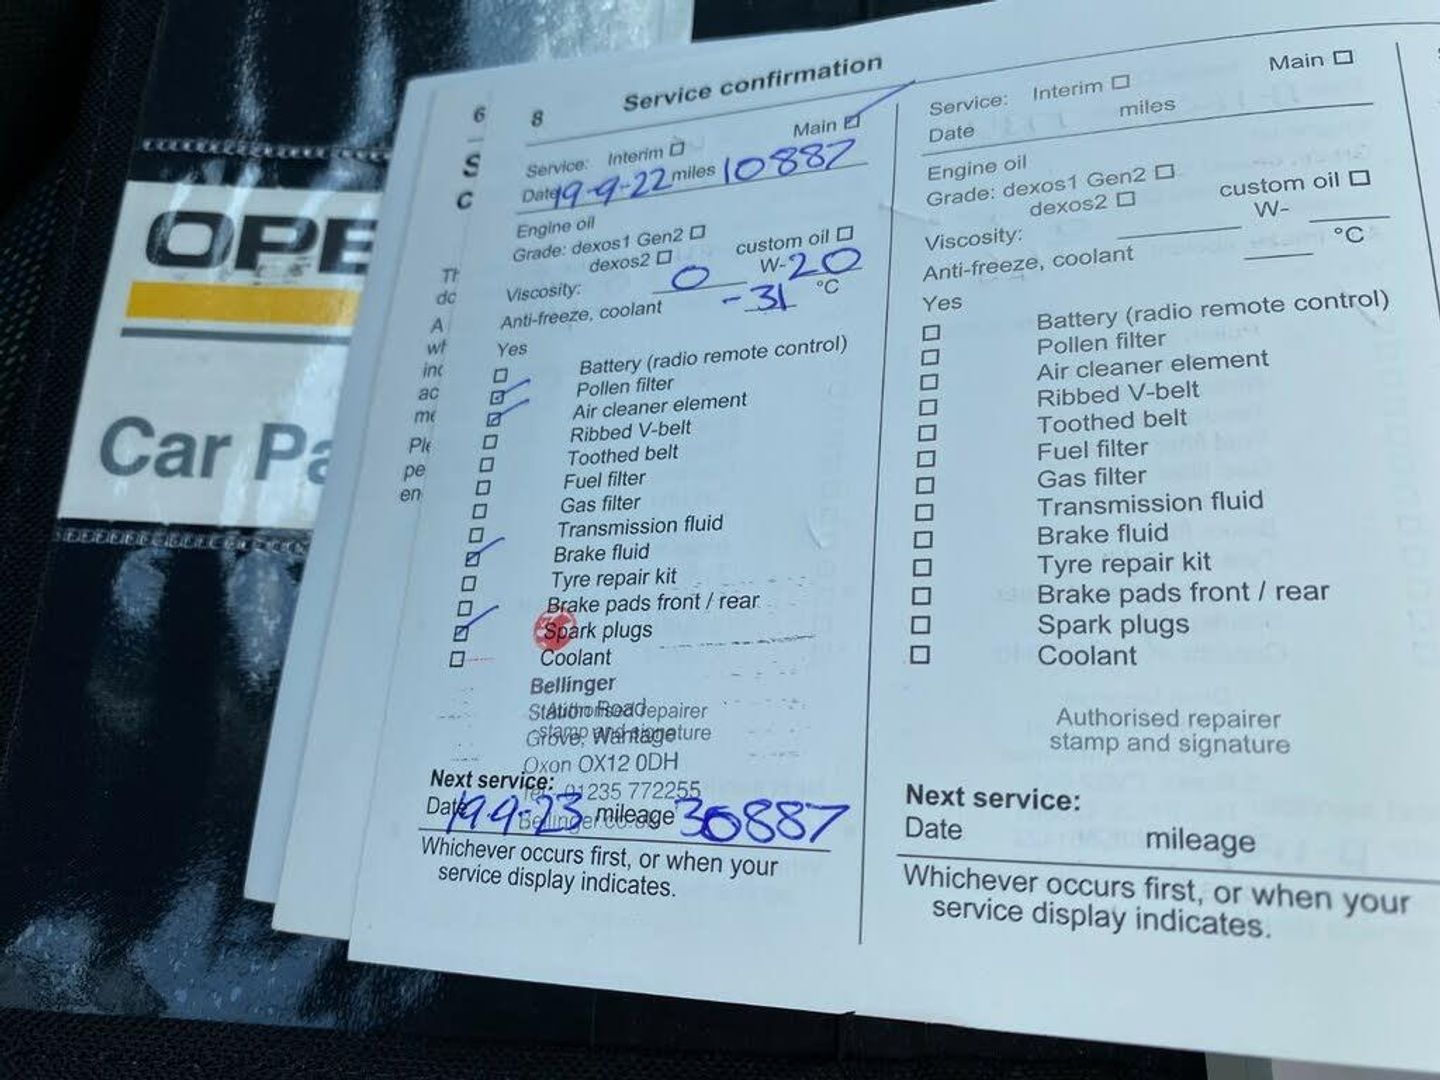 OPE
Car Pa
6
S
C
Th
do
A
wh
inc
ac
me
Ple
pe
en
8 Service confirmation
Service: Interim ☐ Main ☑
Date 19-9-22 miles 10887
Engine oil
Grade: dexos1 Gen2 ☐
dexos2 ☐ custom oil ☐
Viscosity: 0 W-20
Anti-freeze, coolant -31 °C
Yes
☐ Battery (radio remote control)
☑ Pollen filter
☑ Air cleaner element
☐ Ribbed V-belt
☐ Toothed belt
☐ Fuel filter
☐ Gas filter
☐ Transmission fluid
☑ Brake fluid
☐ Tyre repair kit
☐ Brake pads front / rear
☑ Spark plugs
☐ Coolant
Bellinger
Station Road
Authorised repairer
Grove, Wantage
stamp and signature
Oxon OX12 0DH
Next service:
Tel: 01235 772255
Date 19-9-23 mileage 30887
Whichever occurs first, or when your
service display indicates.
Service: Interim ☐ Main ☐
Date miles
Engine oil
Grade: dexos1 Gen2 ☐
dexos2 ☐ custom oil ☐
Viscosity: W-
Anti-freeze, coolant °C
Yes
☐ Battery (radio remote control)
☐ Pollen filter
☐ Air cleaner element
☐ Ribbed V-belt
☐ Toothed belt
☐ Fuel filter
☐ Gas filter
☐ Transmission fluid
☐ Brake fluid
☐ Tyre repair kit
☐ Brake pads front / rear
☐ Spark plugs
☐ Coolant
Authorised repairer
stamp and signature
Next service:
Date mileage
Whichever occurs first, or when your
service display indicates.